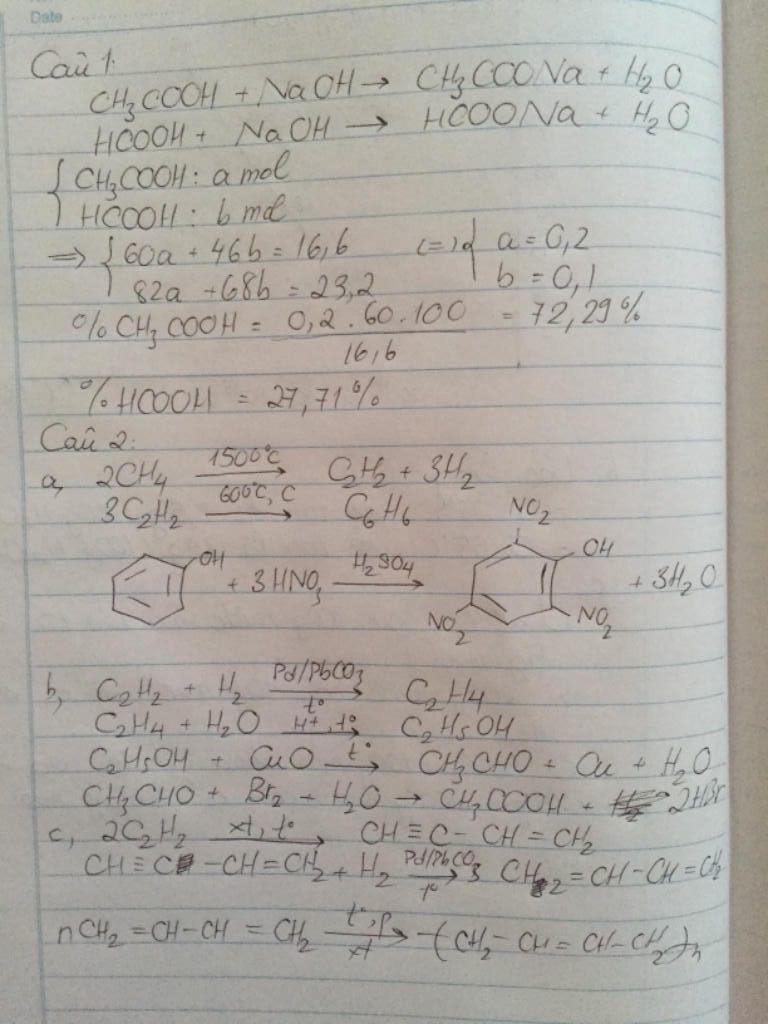 Date
Câu 1:
CH₃COOH + NaOH → CH₃COONa + H₂O
HCOOH + NaOH → HCOONa + H₂O
{ CH₃COOH: a mol
HCOOH: b mol
=> { 60a + 46b = 16,6 (=) { a = 0,2
82a + 68b = 23,2 b = 0,1
% CH₃COOH = 0,2 . 60 . 100 = 72,29%
16,6
% HCOOH = 27,71%
Câu 2:
a, 2CH₄ 1500°C → C₂H₂ + 3H₂
3C₂H₂ 600°C, C → C₆H₆
NO₂
OH + 3HNO₃ H₂SO₄ → OH + 3H₂O
NO₂ NO₂
b, C₂H₂ + H₂ Pd/PbCO₃ t° → C₂H₄
C₂H₄ + H₂O H⁺, t° → C₂H₅OH
C₂H₅OH + CuO t° → CH₃CHO + Cu + H₂O
CH₃CHO + Br₂ + H₂O → CH₃COOH + 2HBr
c, 2C₂H₂ xt, t° → CH ≡ C - CH = CH₂
CH ≡ C - CH = CH₂ + H₂ Pd/PbCO₃ t° → CH₂ = CH - CH = CH₂
nCH₂ = CH - CH = CH₂ t°, p xt → -( CH₂ - CH = CH - CH₂ )n